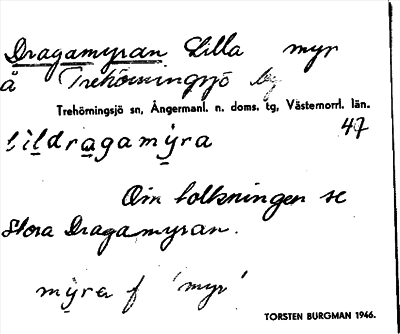 Dragamyran Lilla myr
å Trehörningsjö by
Trehörningsjö sn, Ångermanl. n. doms. tg, Västernorrl. län.
47
lildragamyra
Om tolkningen se
Stora Dragamyran.
myra f 'myr'
TORSTEN BURGMAN 1946.